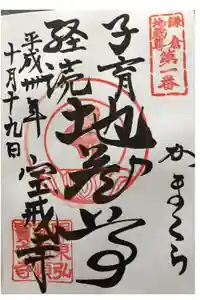 鎌倉
地蔵尊
第一番
かまくら
子育
経読
地蔵尊
平成卅年
十月十九日
宝戒寺